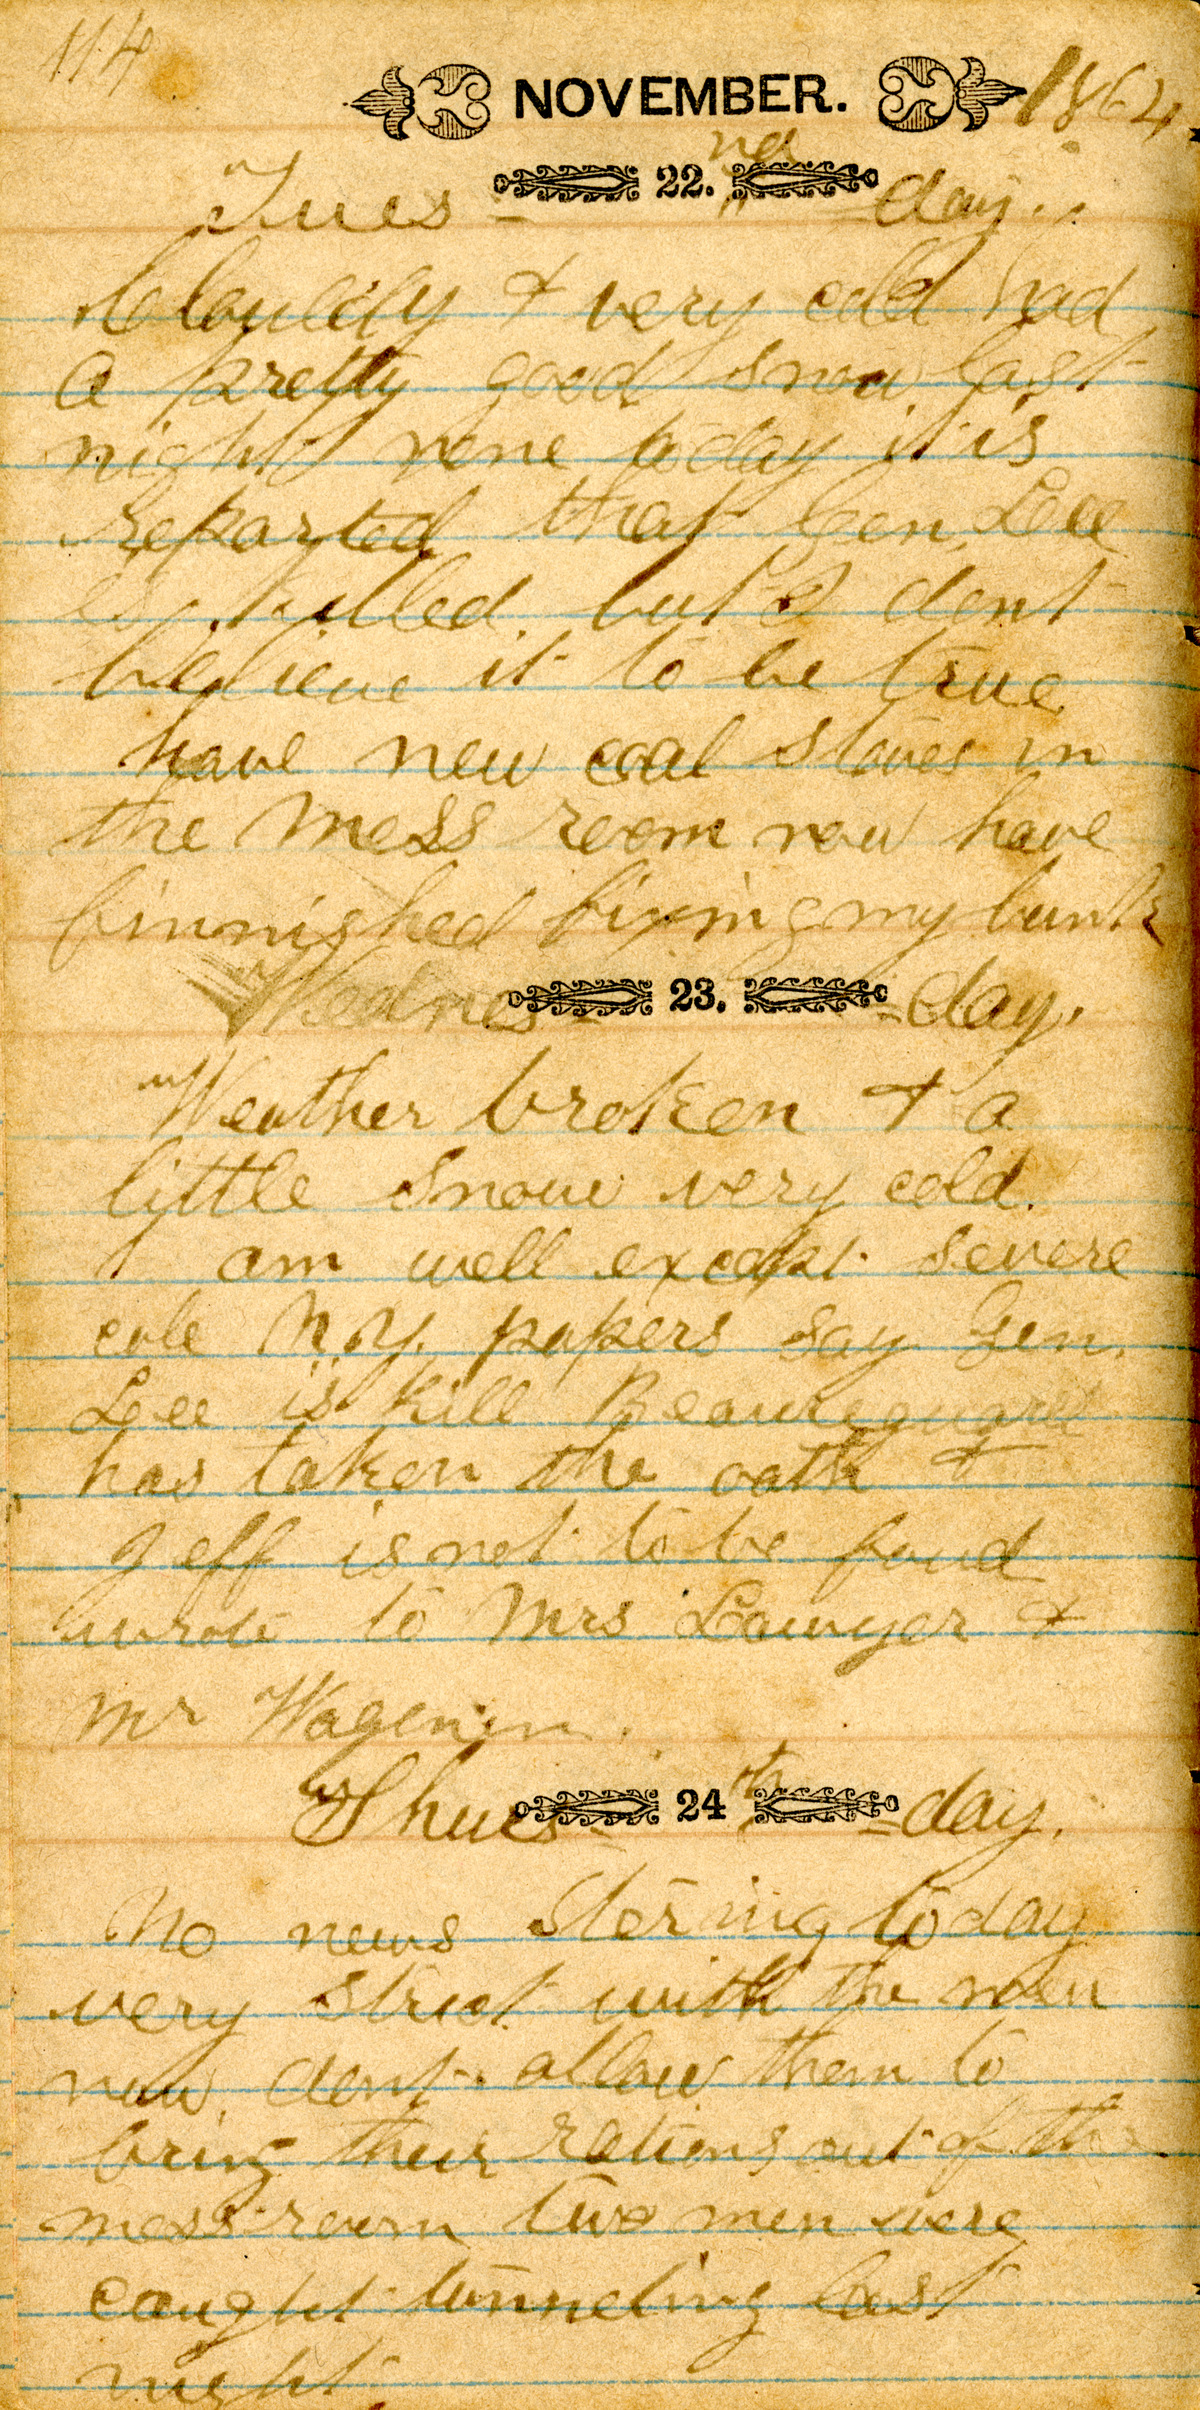 114
NOVEMBER. 1864
Tues = 22. nd = day.
Cloudy & very cold had
a pretty good snow last
night none today it is
Reported that Gen. Lee
is killed but I dont
believe it to be true
have new coal stoves in
the Mess room now have
finnished fixing my bunk
Wednes = 23. = day.
Weather broken & a
little snow very cold.
am well except severe
cole N.Y. papers say Gen.
Lee is kill Beaureguard
has taken the oath &
Jeff is not to be foud
wrote to Mrs Lawyer &
Mr Wagenen.
Thurs = 24 th = day.
No news stering today
very strict with the men
now dont allow them to
bring their rations out of the
mess room two men were
caught tunneling last
night